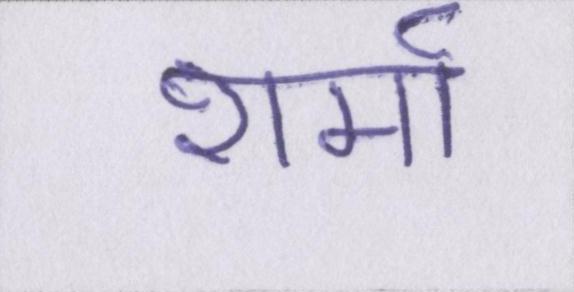 शर्मा